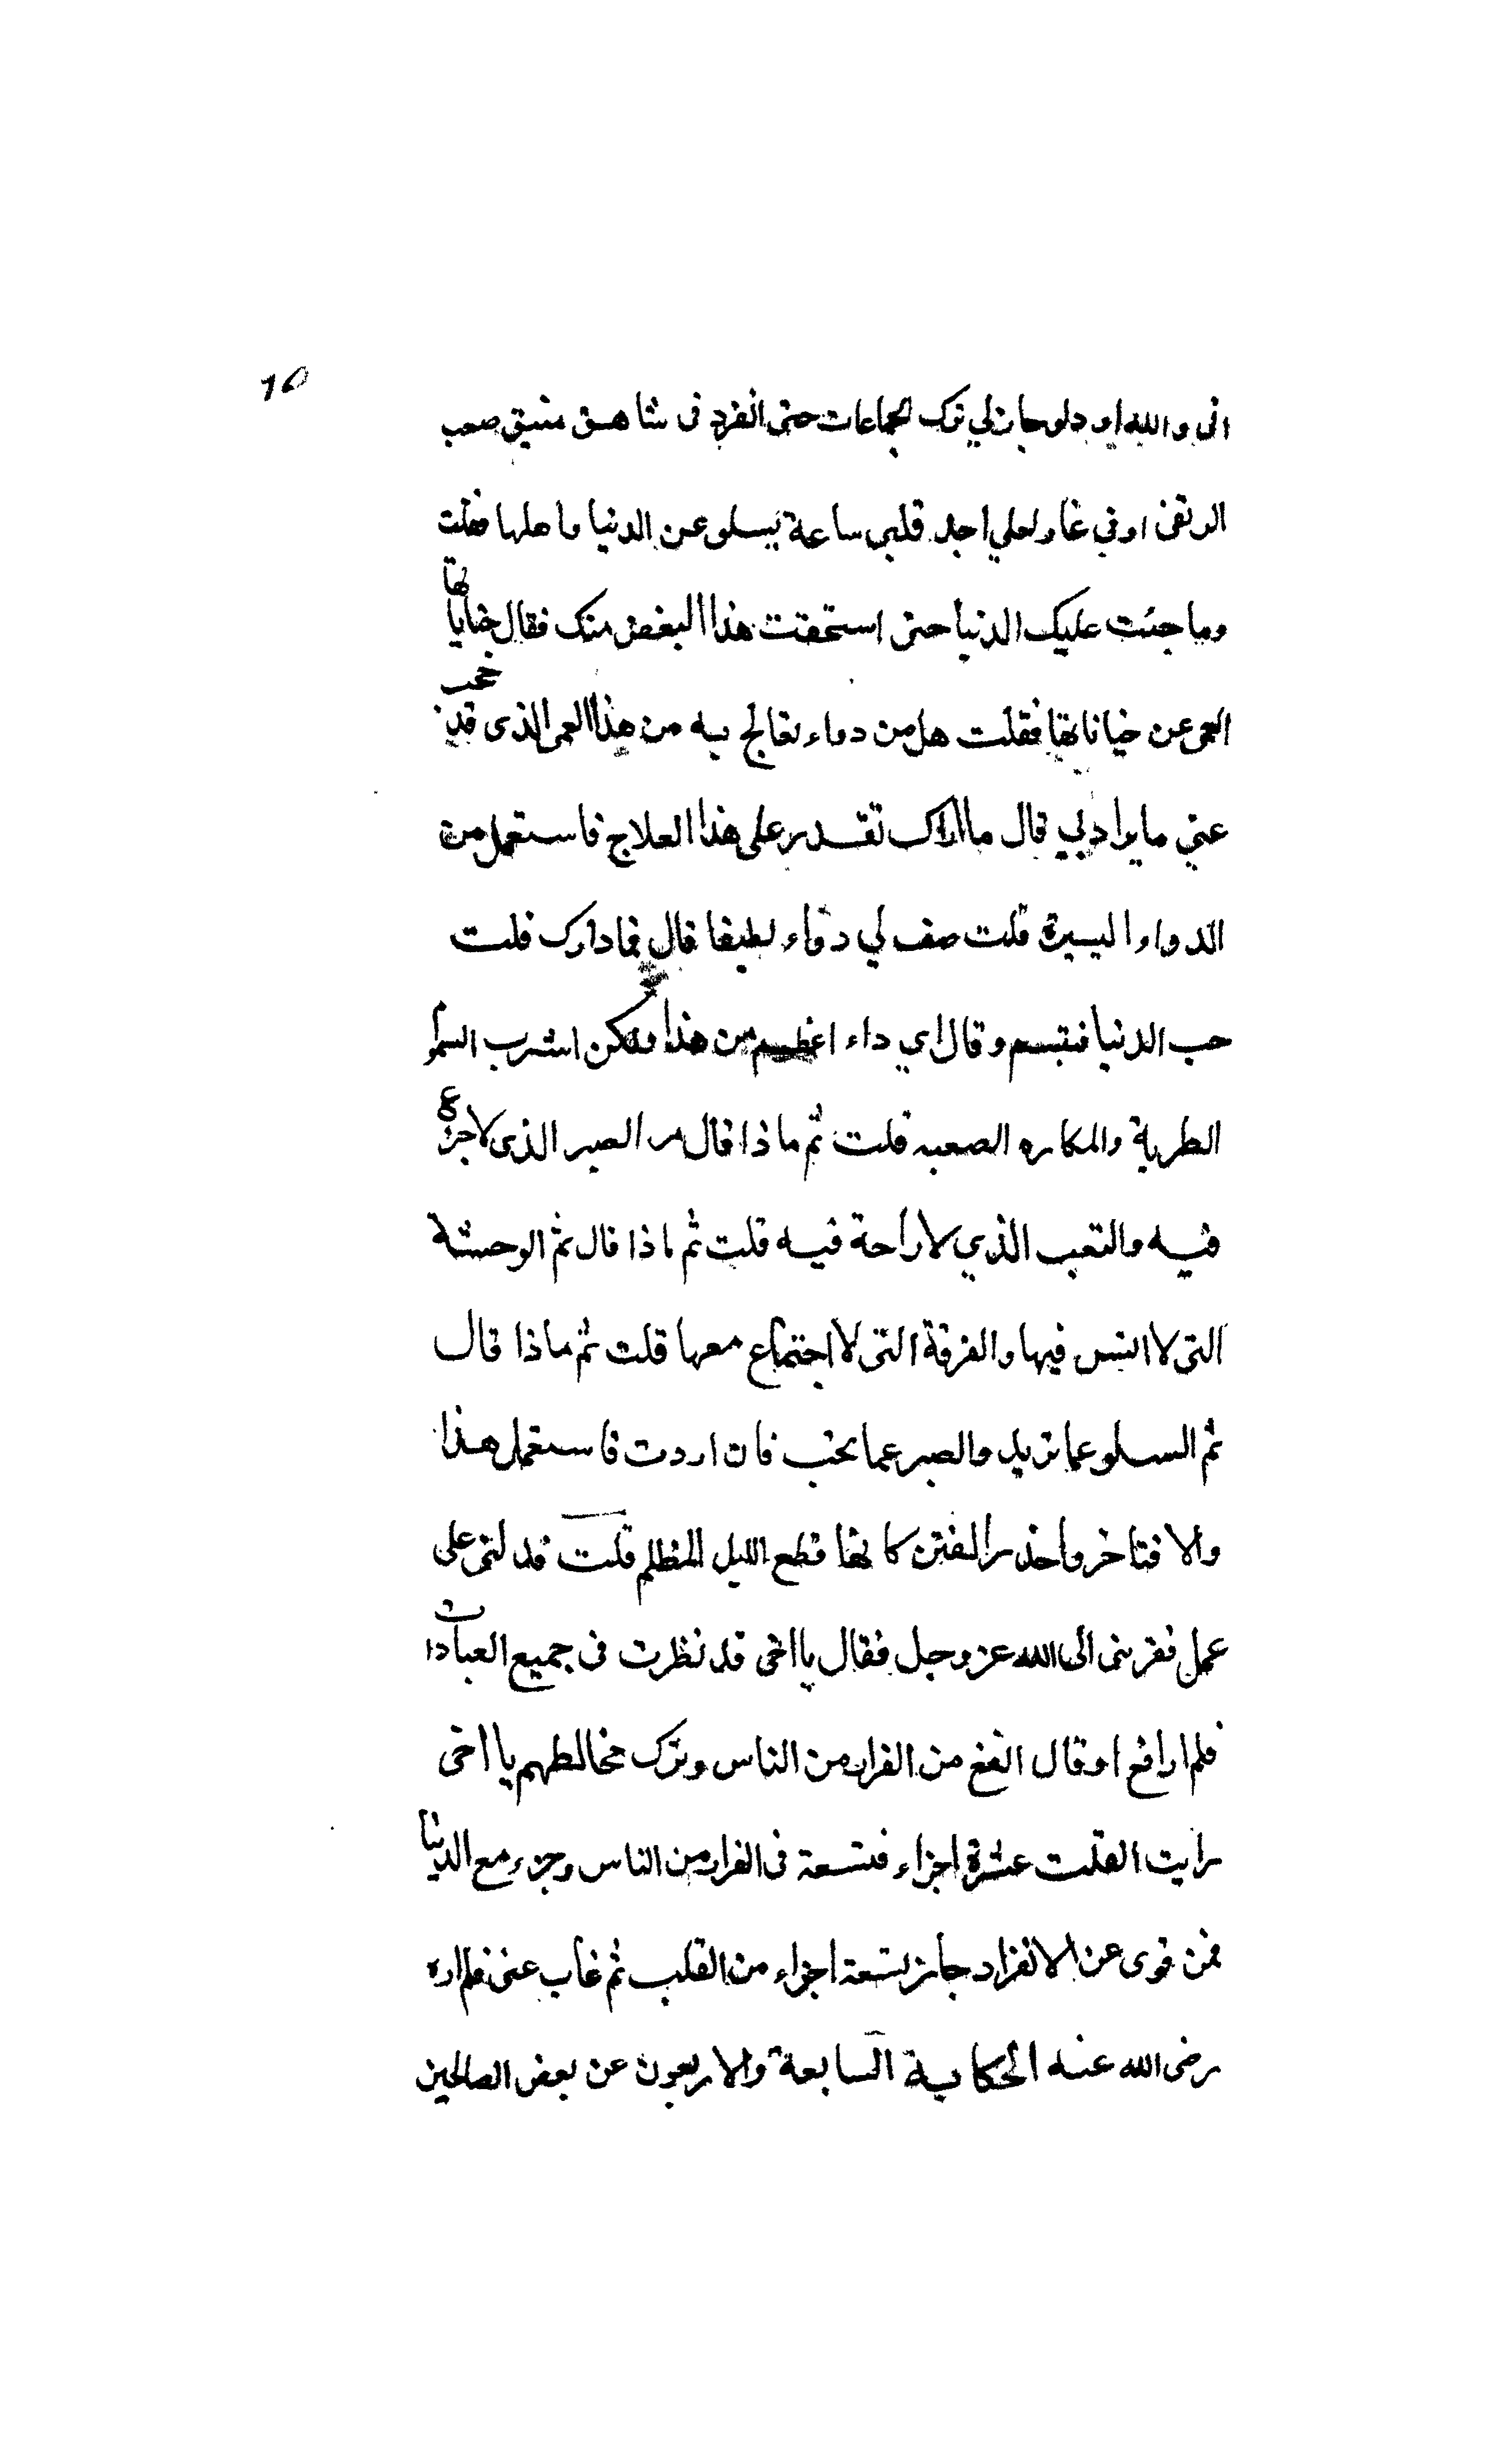 ٦٥
انى والله اود لو جاز لي ترك الجماعات حتى انفرد فى شاهق منيق صعب
المرتقى او في غار لعلي اجد قلبي ساعة يسلو عن الدنيا واهلها فقلت
وما جنت عليك الدنيا حتى استحقت هذا البغض منك فقال خباياتها
العمى عن خياناتها فقلت هل من دواء تعالج به من هذا العمى الذى قد حجب
عني ما يراد بي قال ما اراك تقدر على هذا العلاج فاستعمل من
الدواء اليسيرة قلت صف لي دواء لطيفا قال فما داؤك قلت
حب الدنيا فتبسم وقال اي داء اعظم من هذا ولكن اشرب السموم
الطرية والمكاره الصعبه قلت ثم ماذا قال مر الصبر الذى لا جزع
فيه والتعب الذي لا راحة فيه قلت ثم ماذا قال ثم الوحشة
التى لا انس فيها والفرقة التى لا اجتماع معها قلت ثم ماذا قال
ثم السلو عما تريد والصبر عما تحب فان اردت فاستعمل هذا
والا فتاخر واحذر الفتن كانها قطع الليل المظلم قلت قد لنى على
عمل فقربنى الى الله عز وجل فقال يا اخى قد نظرت فى جميع العبادات
فلم ار انفع او قال انفع من الفرار من الناس وترك مخالطهم يا اخى
رايت القلب عشرة اجزاء فتسعة فى الفرار من الناس وجزء مع الدنيا
فمن قوى عن الانفراد حاز بتسعة اجزاء من القلب ثم غاب عنى فلم اره
رضى الله عنه الحكاية السابعة والاربعون عن بعض الصالحين